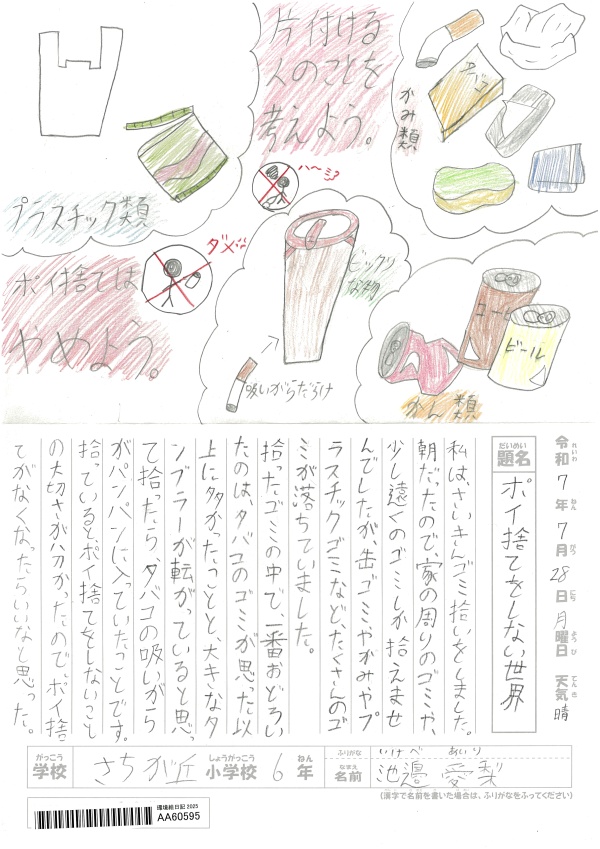 片付ける
人のことを
考えよう。
タバコ
かみ類
プラスチック類
ハ〜ミ?
ダメ
ポイ捨ては
やめよう。
ビックリ
な物
吸いがらだらけ
コーラ
ビール
かん類
令和7年7月28日月曜日 天気 晴
れいわ ねん がつ にち ようび てんき
だいめい
題名 ポイ捨てをしない世界
私は、さいきんゴミ拾いをしました。
朝だったので、家の周りのゴミや、
少し遠くのゴミしか拾えませ
んでしたが、缶ゴミやかみやプ
ラスチックゴミなど、たくさんのゴ
ミが落ちていました。
拾ったゴミの中で、一番おどろい
たのは、タバコのゴミが思った以
上に多かったことと、大きなタ
ンブラーが転がっていると思っ
て拾ったら、タバコの吸いがら
がパンパンに入っていたことです。
拾っているとポイ捨てをしないこと
の大切さが分かったので、ポイ捨
てがなくなったらいいなと思った。
がっこう しょうがっこう ねん
学校 さちが丘 小学校 6年
ふりがな いけべ あいり
なまえ
名前 池邉 愛梨
(漢字で名前を書いた場合は、ふりがなをふってください)
環境絵日記 2025
AA60595